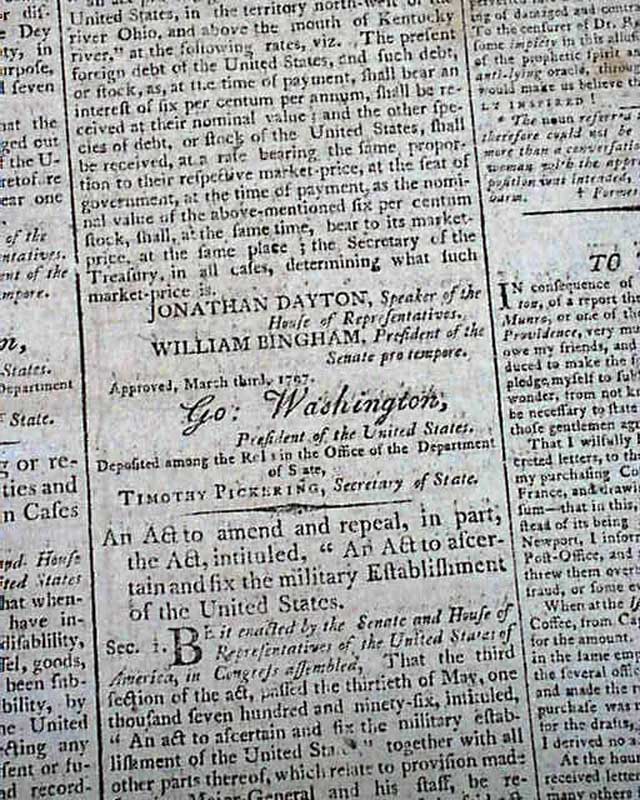 dif-
e Dey
ty, in
urpose,
d seven
hat the
ged out
f the U-
retofore
ear one
of the
ntatives.
ent of the
mpore.
n,
States.
Department
State.
g or re-
ties and
n Cafes
nd. House
ited States
hat when-
have in-
difablility,
fel, goods,
been fub-
bility, by
he United
cting any
fent or fu-
d record-
United States, in the territory north-weft of the
river Ohio, and above the mouth of Kentucky
river," at the following rates, viz. The prefent
foreign debt of the United States, and fuch debt,
or ftock, as, at the time of payment, fhall bear an
intereft of fix per centum per annum, fhall be re-
ceived at their nominal value; and the other fpe-
cies of debt, or ftock of the United States, fhall
be received, at a rate bearing the fame propor-
tion to their refpective market-price, at the feat of
government, at the time of payment, as the nomi-
nal value of the above-mentioned fix per centum
ftock, fhall, at the fame time, bear to its market-
price, at the fame place; the Secretary of the
Treafury, in all cafes, determining what fuch
market-price is.
JONATHAN DAYTON, Speaker of the
Houfe of Reprefentatives.
WILLIAM BINGHAM, Prefident of the
Senate pro tempore.
Approved, March third, 1797.
Go: Wafhington,
Prefident of the United States.
Depofited among the Rolls in the Office of the Department
of State,
TIMOTHY PICKERING, Secretary of State.
An Act to amend and repeal, in part,
the Act, intituled, " An Act to afcer-
tain and fix the military Eftablifhment
of the United States.
Sec. 1. BE it enacted by the Senate and Houfe of
Reprefentatives of the United States of
America, in Congrefs affembled, That the third
fection of the act, paffed the thirtieth of May, one
thoufand feven hundred and ninety-fix, intituled,
" An act to afcertain and fix the military eftab-
lifhment of the United States" together with all
other parts thereof, which relate to provifion made
Major-General and his ftaff, be re-
ing of damaged and
To the cenfurer of Dr.
fome impiety in this
of the prophetic fpirit
anti-lying oracle, throug
would make us believe
INSPIRED!
* The noun referr'd
therefore could not be
more than a converfatio
woman with the app
pofition was intended,
warm. † Former
TO
IN confequence of
ton, of a report
Munro, or one of the
Providence, very
owe my friends, and
duced to make the
pledge myfelf to
wonder, from not
be neceffary to ftate
thofe gentlemen
That I wilfully
creted letters, to
my purchafing
France, and drawin
fum—that in this,
ftead of its being
Newport, I inform
Poft-Office, and
threw them over
fraud, or fome
When at the
Coffee, from Cap
for the amount.
in the fame
the feveral offi
and made the
purchafe was
for the drafts,
I derived no
At the hou
received letter
many others